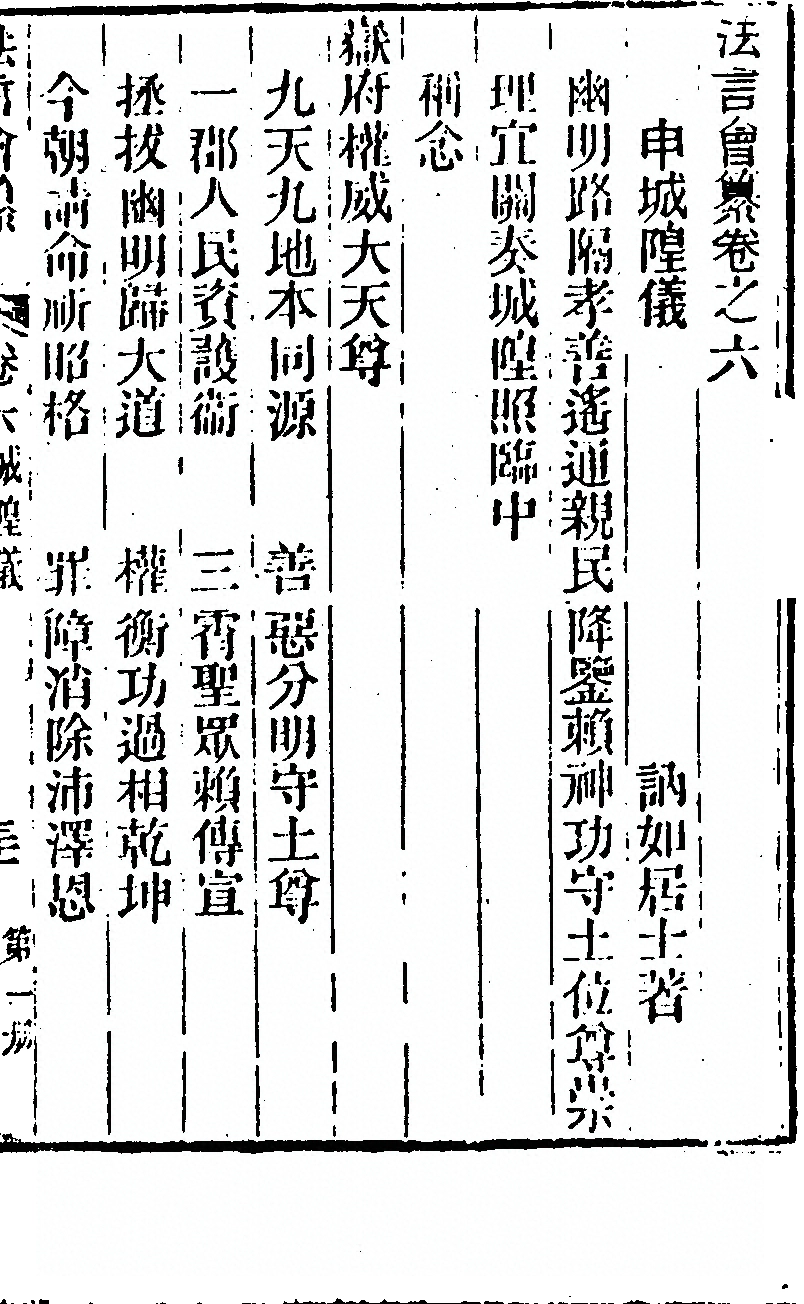 法言會纂卷之六
申城隍儀　訥如居士著
幽明路隔孝善遙通親民降鑒賴神功守土位尊崇
理宜關奏城隍照臨中
稱念
嶽府權威大天尊
九天九地本同源　善惡分明守土尊
一郡人民資護衞　三霄聖眾賴傳宣
拯拔幽明歸大道　權衡功過相乾坤
今朝請命祈昭格　罪障消除沛澤恩
法言會纂　卷六城隍儀　第一